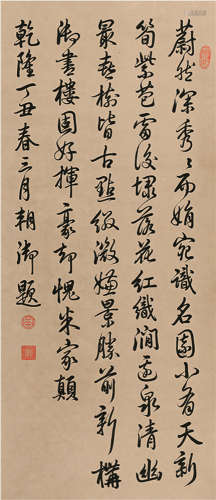 蔚然深秀〻而娟宛識名園小有天新
筍紫苞雷後坼落花紅織澗邊泉清幽
最喜樹皆古點綴微嫌景勝前新構
御書樓固好揮豪却愧米家顛
乾隆丁丑春三月朝御題